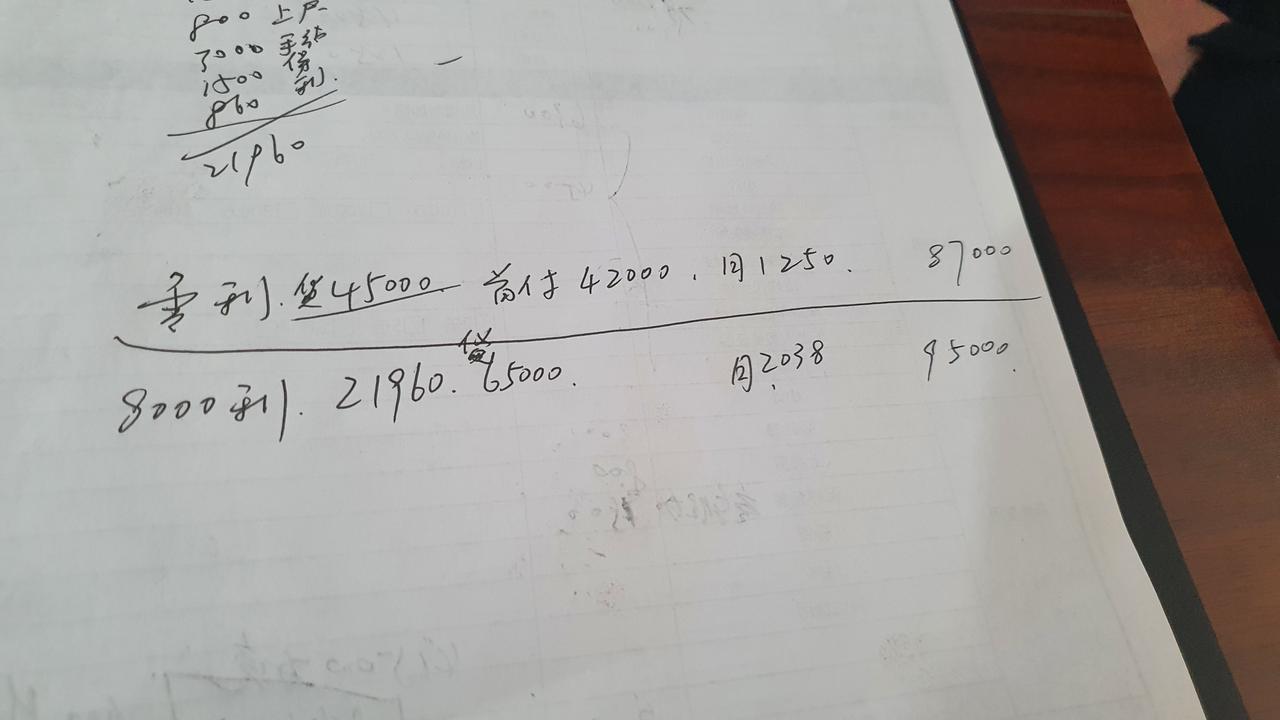 800 上户
3000 手续
1500 保
860 利.
21960
零利. 贷45000 首付 42000. 月1250. 87000
8000利. 21960. 贷65000. 月2038 95000.